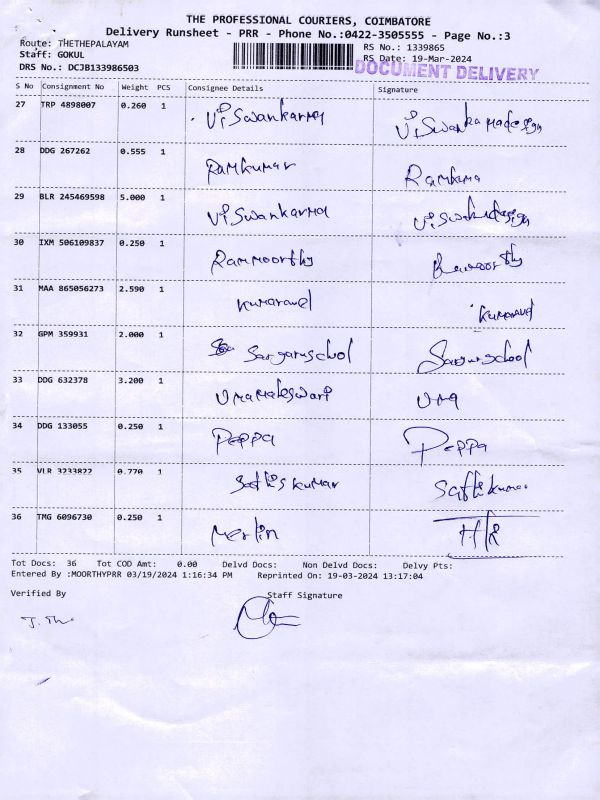 THE PROFESSIONAL COURIERS, COIMBATORE
Delivery Runsheet - PRR - Phone No.:0422-3505555 - Page No.:3
Route: THETHEPALAYAM RS No.: 1339865
Staff: GOKUL RS Date: 19-Mar-2024
DRS No.: DCJB133986503 DOCUMENT DELIVERY
S No Consignment No Weight PCS Consignee Details Signature
27 TRP 4898007 0.260 1 Viswankarma
28 DDG 267262 0.555 1 Ramkumar Ramkuma
29 BLR 245469598 5.000 1 Viswankarma
30 IXM 506109837 0.250 1 Rammoorthy
31 MAA 865056273 2.590 1 Kumaravel Kumaravel
32 GPM 359931 2.000 1
33 DDG 632378 3.200 1 Umamaheswari Uma
34 DDG 133055 0.250 1 Peppa Peppa
35 VLR 3233822 0.770 1 Sathiskumar Sathikumar
36 TMG 6096730 0.250 1 Merlin
Tot Docs: 36 Tot COD Amt: 0.00 Delvd Docs: Non Delvd Docs: Delvy Pts:
Entered By :MOORTHYPRR 03/19/2024 1:16:34 PM Reprinted On: 19-03-2024 13:17:04
Verified By Staff Signature